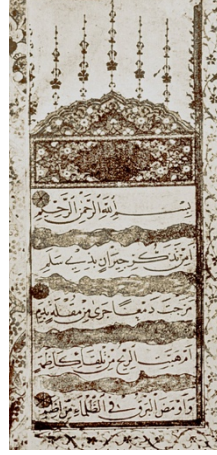 بسم الله الرحمن الرحيم
امن تذكر جيران بذي سلم
مزجت دمعا جرى من مقلة بدم
ام هبت الريح من تلقاء كاظمة
واومض البرق في الظلماء من اضم